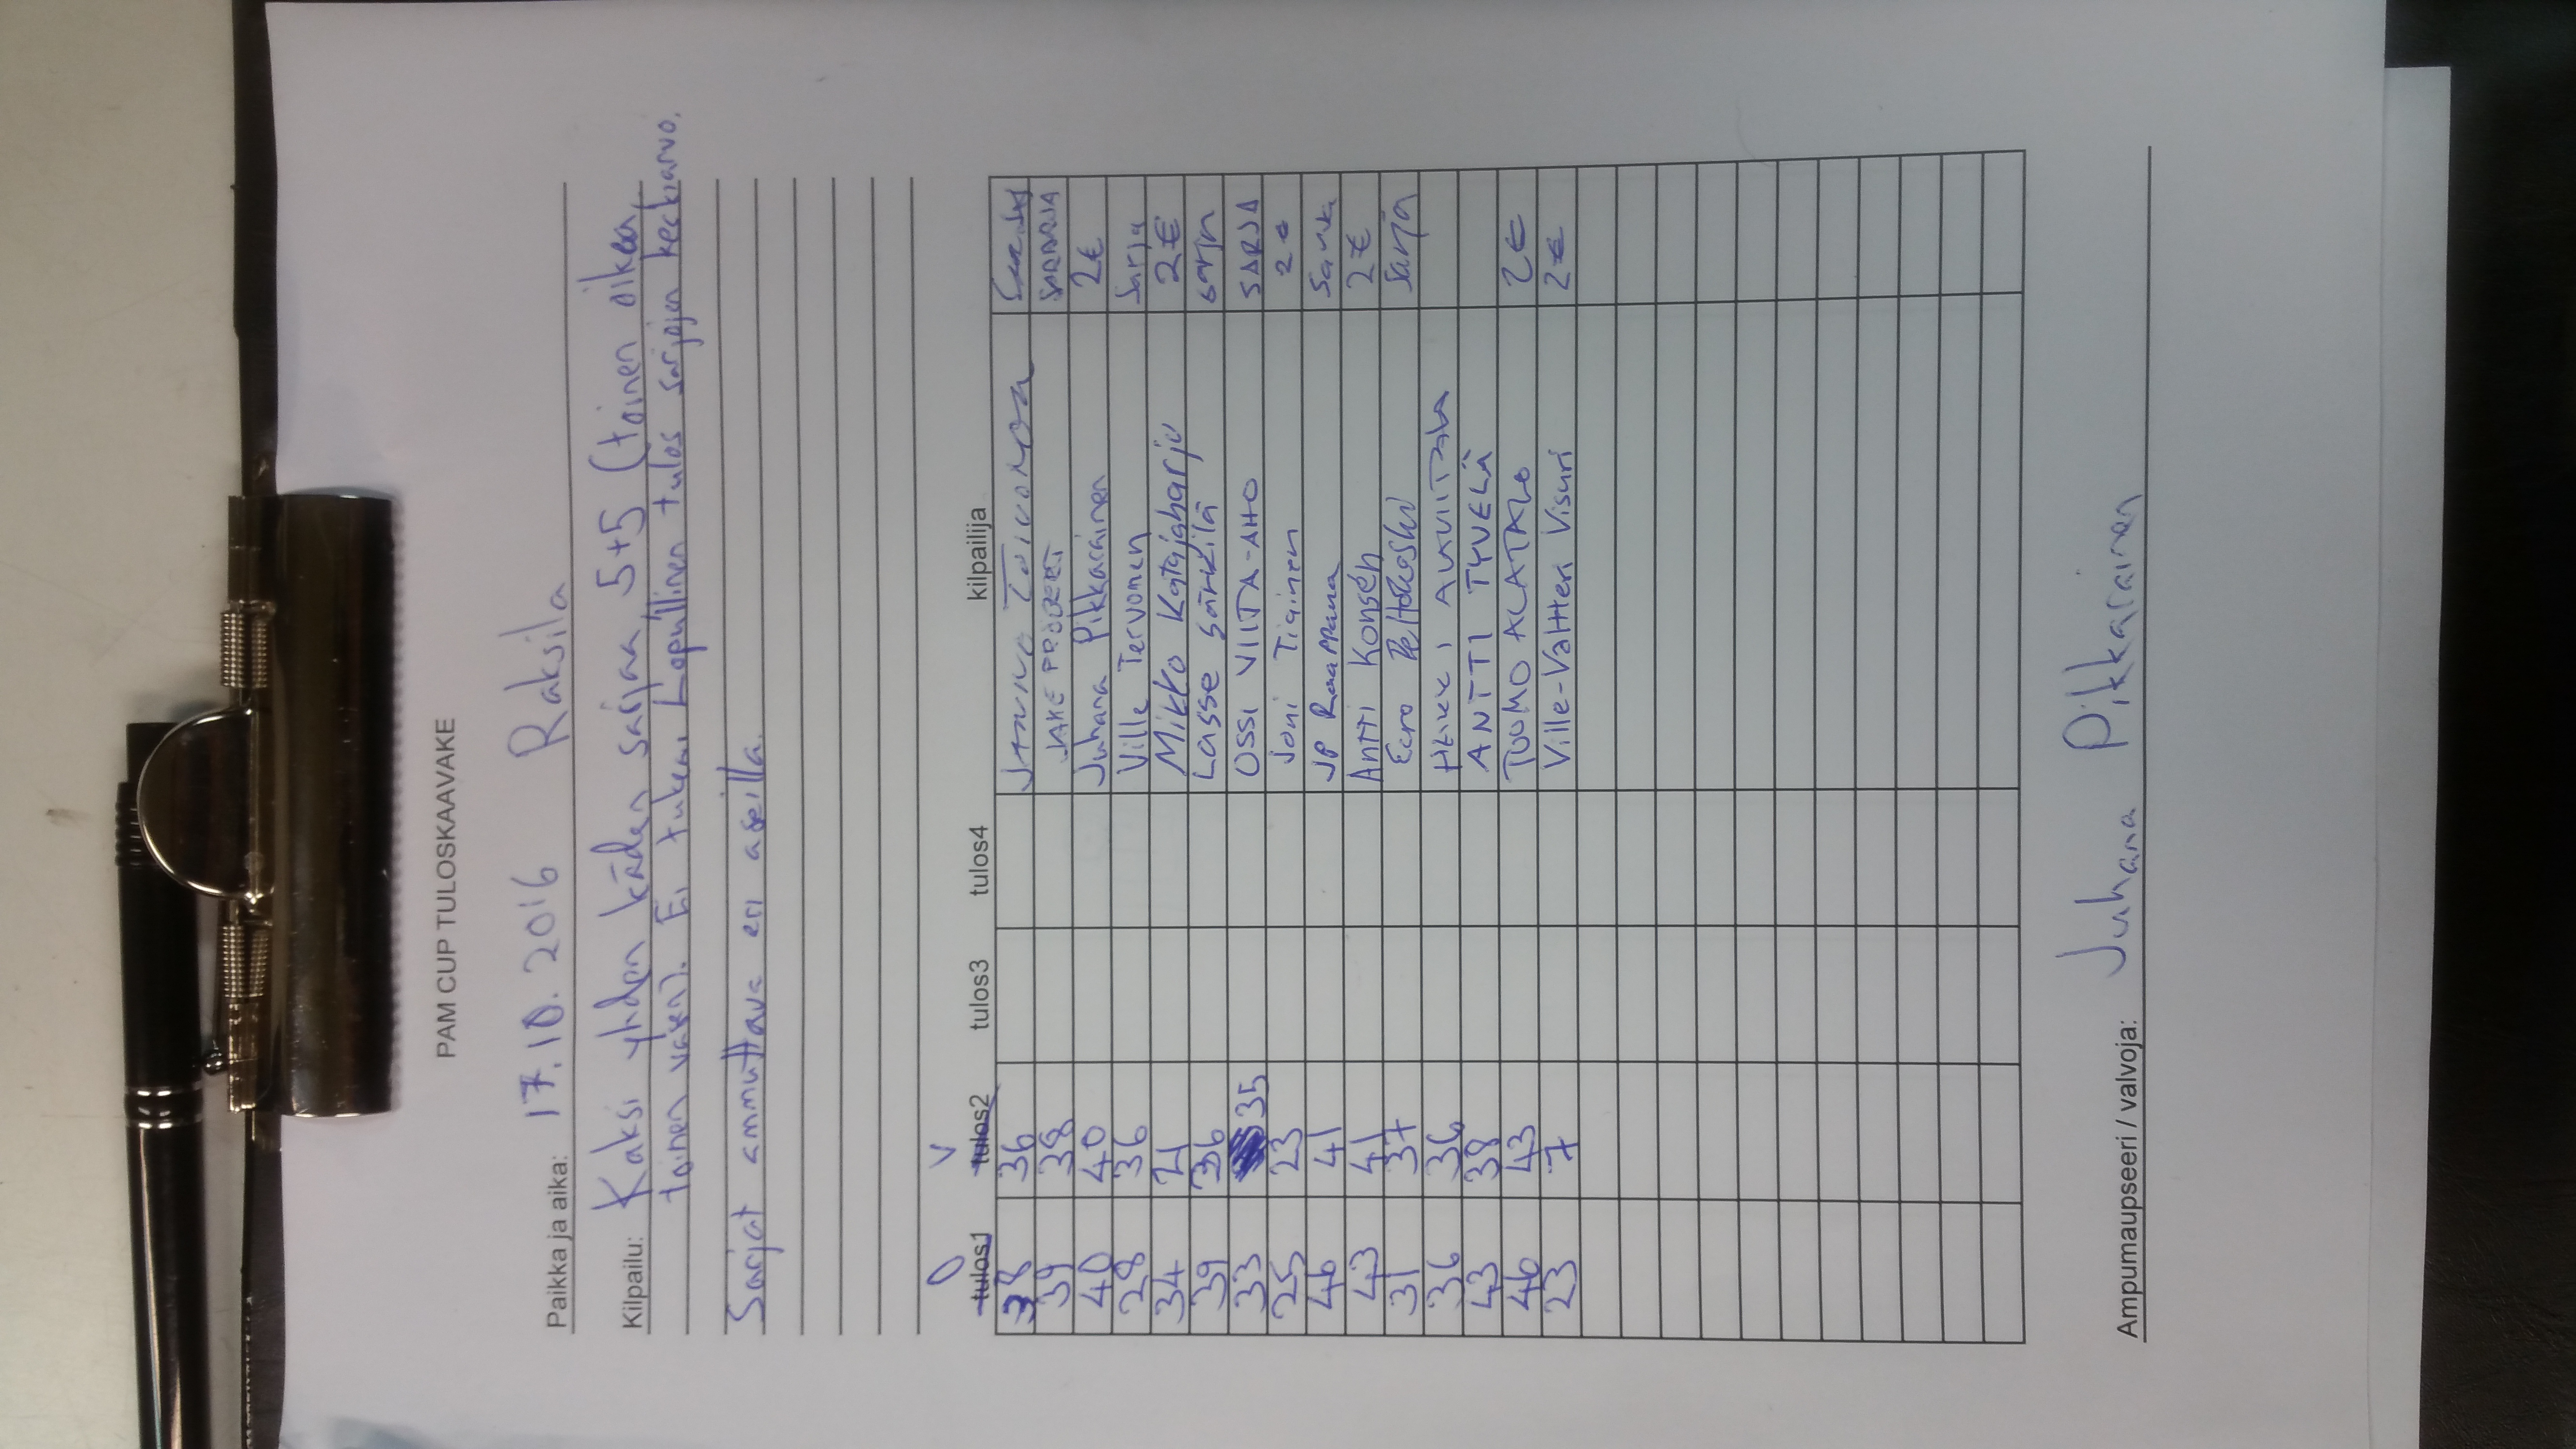 PAM CUP TULOSKAAVAKE
Paikka ja aika: 17.10.2016 Raksila
Kilpailu: Kaksi yhden käden sarjaa 5+5 (toinen oikea,
toinen vasen). Ei tukea. Lopullinen tulos sarjojen keskiarvo.
Sarjat ammuttava eri aseilla.
O V
tulos1 tulos2 tulos3 tulos4 kilpailija
38 36
39 38 JAKE
40 40 Juhana Pikkarainen 2€
28 36 Ville Tervonen Sarja
34 21 Mikko Katajaharju 2€
39 36 Lasse Särkilä sarja
33 35 OSSI VIITA-AHO SARJA
25 23 Joni Tiainen 2€
46 41 JP Sarja
43 41 Antti Konsén 2€
31 37 Eero Sarja
36 36
43 38 ANTTI TYVELÄ
46 43 TUOMO ALATALO 2€
23 7 Ville-Valtteri Visuri 2€
Ampumaupseeri / valvoja: Juhana Pikkarainen